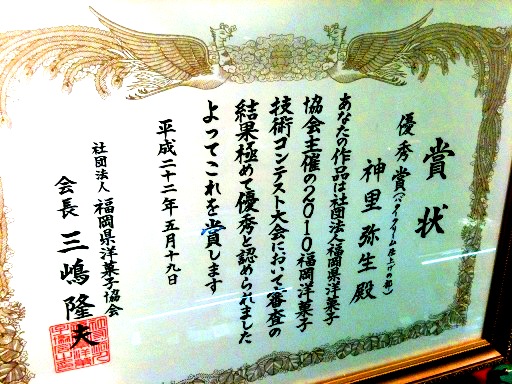 賞状
優秀賞(バタークリーム仕上げの部)
神里弥生殿
あなたの作品は社団法人福岡県洋菓子
協会主催の2010福岡洋菓子
技術コンテスト大会において審査の
結果極めて優秀と認められました
よってこれを賞します
平成二十二年五月十九日
社団法人 福岡県洋菓子協会
会長 三嶋隆夫